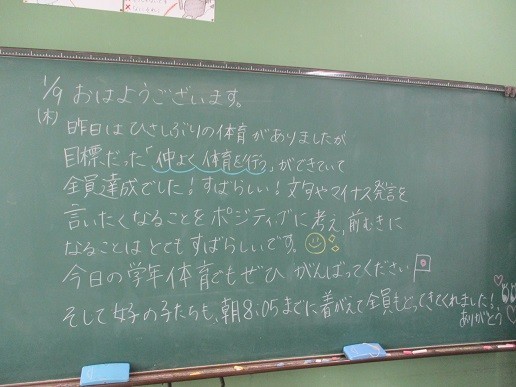 1/9 おはようございます。
(木) 昨日はひさしぶりの体育がありましたが
目標だった「仲よく体育を行う」ができていて
全員達成でした！すばらしい！文句やマイナス発言を
言いたくなることをポジティブに考え、前むきに
なることはとてもすばらしいです。
今日の学年体育でもぜひがんばってください
そして女子の子たちも、朝8:05までに着がえて全員もどってきてくれました！
ありがとう